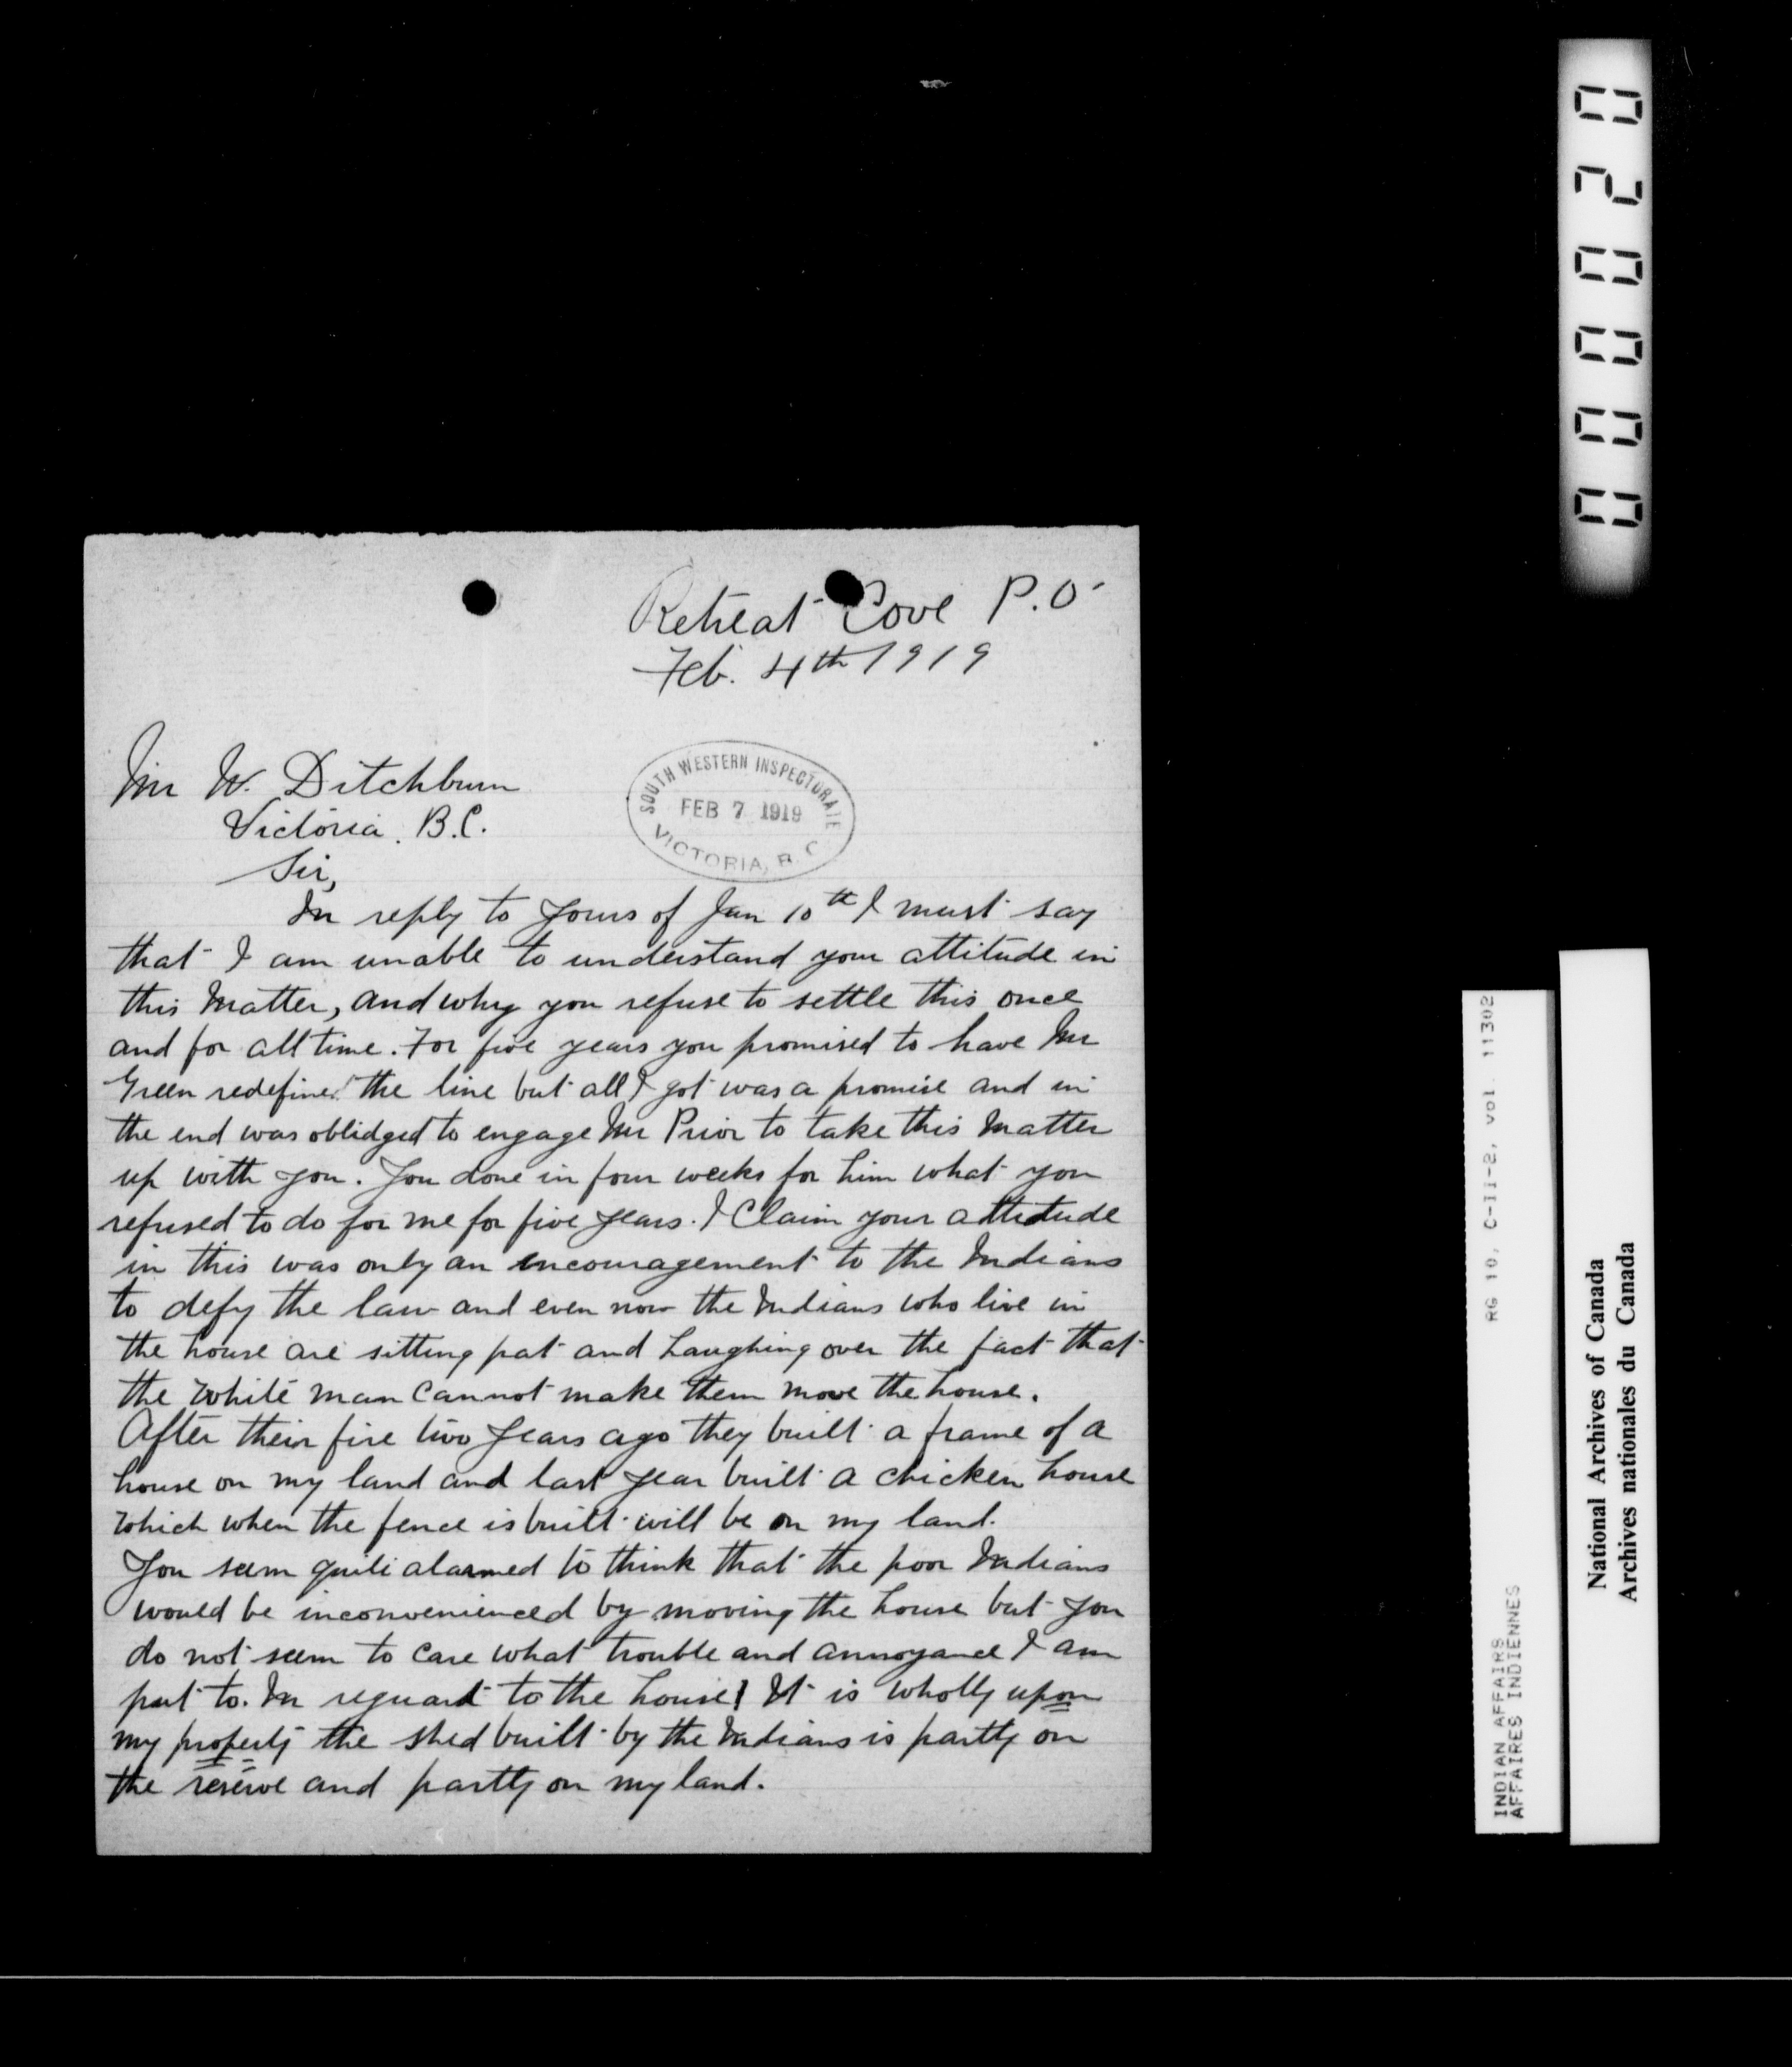 Retreat Cove P.O.
Feb. 4th 1919
Mr W. Ditchburn
Victoria. B.C.
SOUTH WESTERN INSPECTORATE
FEB 7 1919
VICTORIA, B.C.
Sir,
In reply to yours of Jan 10th I must say
that I am unable to understand your attitude in
this matter, and why you refuse to settle this once
and for all time. For five years you promised to have Mr
Green redefine the line but all I got was a promise and in
the end was oblidged to engage Mr Prior to take this matter
up with you. You done in four weeks for him what you
refused to do for me for five years. I Claim your attitude
in this was only an encouragement to the Indians
to defy the law and even now the Indians who live in
the house are sitting pat and Laughing over the fact that
the White man Cannot make them move the house.
After their fire two years ago they built a frame of a
house on my land and last year built a chicken house
which when the fence is built will be on my land.
You seem quite alarmed to think that the poor Indians
would be inconvenienced by moving the house but you
do not seem to care what trouble and annoyance I am
put to. In reguard to the house! It is wholly upon
my property the shed built by the Indians is partly on
the reserve and partly on my land.
000020
RG 10, C-II-2, vol. 11302
INDIAN AFFAIRS
AFFAIRES INDIENNES
National Archives of Canada
Archives nationales du Canada